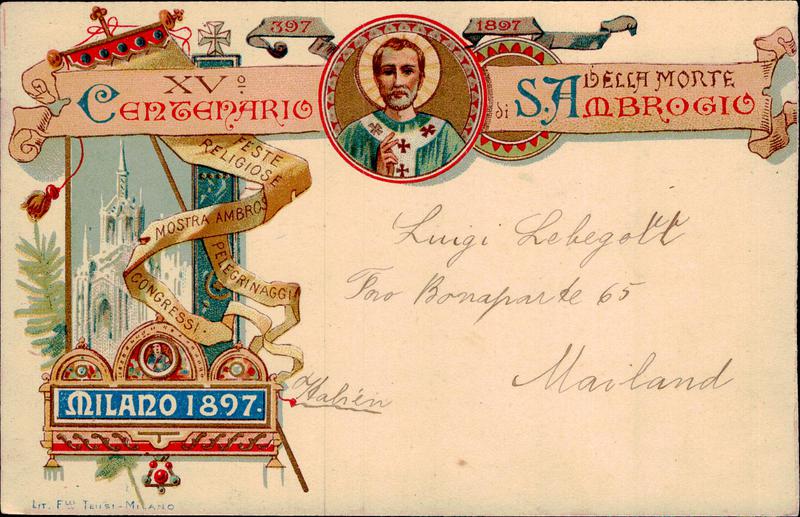 397 1897
XVº CENTENARIO DELLA MORTE
di S. AMBROGIO
FESTE
RELIGIOSE
MOSTRA AMBROS
PELEGRINAGGI
CONGRESSI.
MILANO 1897.
Luigi Lebegott
Foro Bonaparte 65
Mailand
Italien
LIT. F.LLI TENSI-MILANO